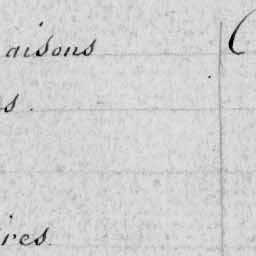 aisons
s.
ires